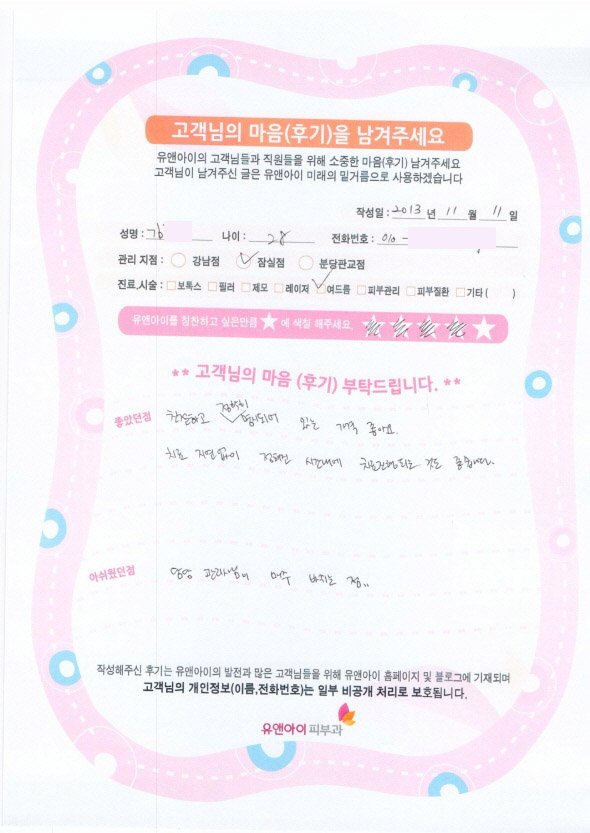 고객님의 마음(후기)을 남겨주세요
유앤아이의 고객님들과 직원들을 위해 소중한 마음(후기) 남겨주세요
고객님이 남겨주신 글은 유앤아이 미래의 밑거름으로 사용하겠습니다
작성일 : 2013 년 11 월 11 일
성명 : 나이 : 28 전화번호 : 010 -
관리 지점 : 강남점 잠실점 분당판교점
진료,시술 : 보톡스 필러 제모 레이저 여드름 피부관리 피부질환 기타 ( )
유앤아이를 칭찬하고 싶은만큼 ★ 에 색칠 해주세요.
** 고객님의 마음 (후기) 부탁드립니다. **
좋았던점 친절하고 정확히 명시되어 있는 가격 좋아요.
치료 지연없이 정해진 시간내에 치료진행되는 것도 좋습니다.
아쉬웠던점 담당 관리사님이 매주 바뀌는 점..
작성해주신 후기는 유앤아이의 발전과 많은 고객님들을 위해 유앤아이 홈페이지 및 블로그에 기재되며
고객님의 개인정보(이름,전화번호)는 일부 비공개 처리로 보호됩니다.
유앤아이피부과